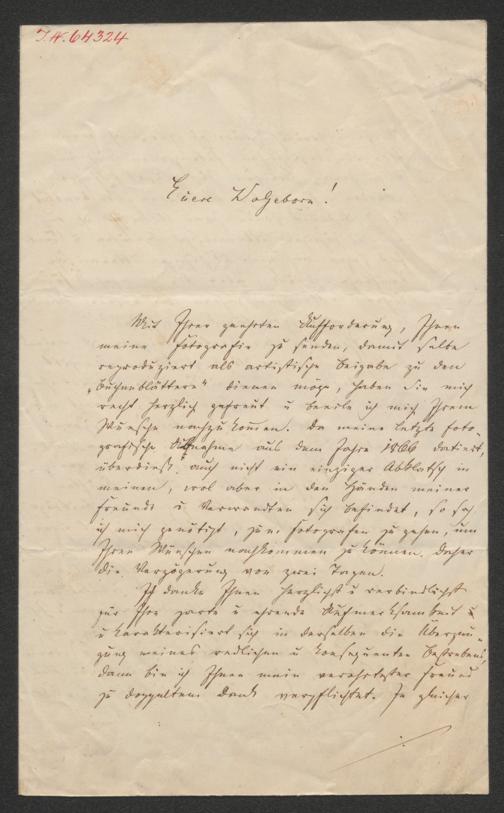 I.N. 64324
Euere Wolgeborn!
Mit Ihrer geehrten Aufforderung, Ihnen
meine Fotografie zu senden, damit selbe
reproduziert als artistische Beigabe zu den
„Bühnenblättern" dienen möge, haben Sie mich
recht herzlich gefreut u beeile ich mich Ihrem
Wunsche nachzukommen. Da meine letzte foto-
grafische Aufnahme aus dem Jahre 1866 datiert,
überdiess auch nicht ein einziger Abklatsch in
meinen, wol aber in den Händen meiner
Freunde u Verwandten sich befindet, so sah
ich mich genötigt, zu m. Fotografen zu gehen, um
Ihren Wünschen nachkommen zu können. Daher
die Verzögerung von zwei Tagen.
Ich danke Ihnen herzlichst u verbindlichst
für Ihre zarte u ehrende Aufmerksamkeit &
u karakterisiert sich in derselben die Überzeu-
gung meines redlichen u konsequenten Bestrebens,
dann bin ich Ihnen mein verehrtester Freund
zu doppeltem Dank verpflichtet. In gleicher